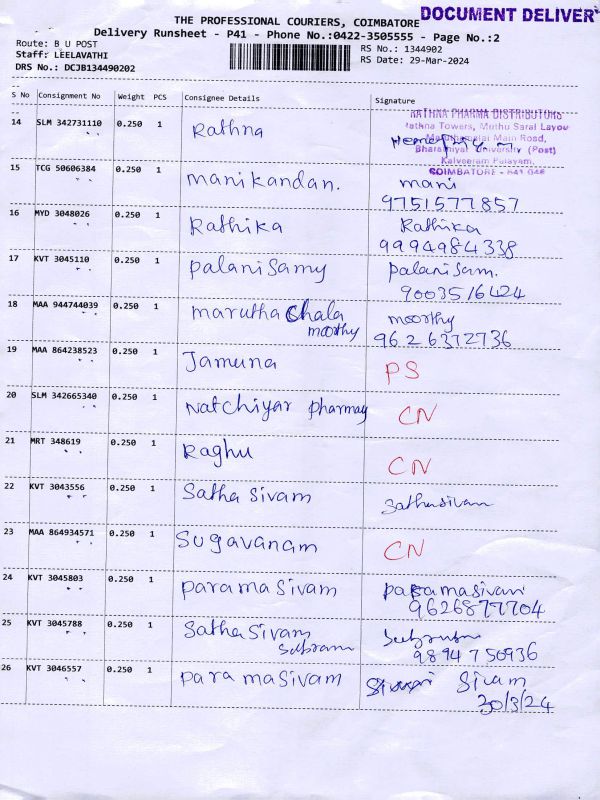 DOCUMENT DELIVER
THE PROFESSIONAL COURIERS, COIMBATORE
Delivery Runsheet - P41 - Phone No.:0422-3505555 - Page No.:2
Route: B U POST
RS No.: 1344902
Staff: LEELAVATHI
RS Date: 29-Mar-2024
DRS No.: DCJB134490202
S No Consignment No Weight PCS Consignee Details Signature
RATHNA PHARMA DISTRIBUTORS
Rathna Towers, Mruthu Sarai Layou
Maruthamalai Main Road,
Bharathiyar University (Post)
Kalveeram Palayam,
COIMBATORE - 641 046
14 SLM 342731110 0.250 1 Rathna
15 TCG 50606384 0.250 1 manikandan. mani
9751577857
16 MYD 3048026 0.250 1 Rathika Rathika
9994984338
17 KVT 3045110 0.250 1 palanisamy palanisam.
9003516424
18 MAA 944744039 0.250 1 marutha chala moorthy
moorthy 9626372736
19 MAA 864238523 0.250 1 Jamuna PS
20 SLM 342665340 0.250 1 Natchiyar pharmay CN
21 MRT 348619 0.250 1 Raghu CN
22 KVT 3043556 0.250 1 Satha sivam Sathasivam
23 MAA 864934571 0.250 1 Sugavanam CN
24 KVT 3045803 0.250 1 paramasivam paramasivam
9626877704
25 KVT 3045788 0.250 1 Satha Sivam
Subram 9894750936
26 KVT 3046557 0.250 1 paramasivam Sivam
30/3/24